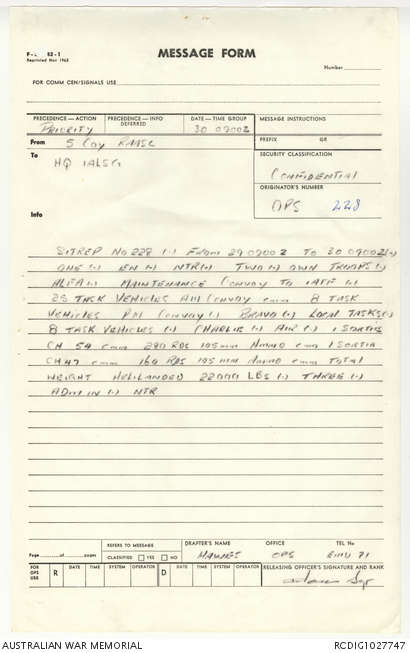 F-  82-1
Reprinted Nov 1965
MESSAGE FORM
Number
FOR COMM CEN/SIGNALS USE
PRECEDENCE—ACTION
PRIORITY
PRECEDENCE—INFO
DEFERRED
DATE—TIME GROUP
30 0700Z
MESSAGE INSTRUCTIONS
PREFIX GR
From 5 COY RAASC
To
HQ 1ALSG
SECURITY CLASSIFICATION
CONFIDENTIAL
ORIGINATOR'S NUMBER
OPS 228
Info
SITREP NO 228 (.) FROM 290700Z TO 300700Z (.)
ONE (.) EN (.) NTR (.) TWO (.) OWN TROOPS (.)
ALFA (.) MAINTENANCE CONVOY TO 1ATF (.)
25 TASK VEHICLES AM CONVOY cmm 8 TASK
VEHICLES PM CONVOY (.) BRAVO (.) LOCAL TASKS (.)
8 TASK VEHICLES (.) CHARLIE (.) AIR (.) 1 SORTIE
CH 54 cmm 280 RDS 105mm AMMO cmm 1 SORTIE
CH47 cmm 160 RDS 105MM AMMO cmm TOTAL
WEIGHT HELILANDED 22000 LBS (.) THREE (.)
ADMIN (.) NTR
Page of pages
REFERS TO MESSAGE
CLASSIFIED YES NO
DRAFTER'S NAME
HAWKES
OFFICE
OPS
TEL No
EMU 71
FOR OPS USE
R DATE TIME SYSTEM OPERATOR
D DATE TIME SYSTEM OPERATOR
RELEASING OFFICER'S SIGNATURE AND RANK
Sgt
AUSTRALIAN WAR MEMORIAL
RCDIG1027747